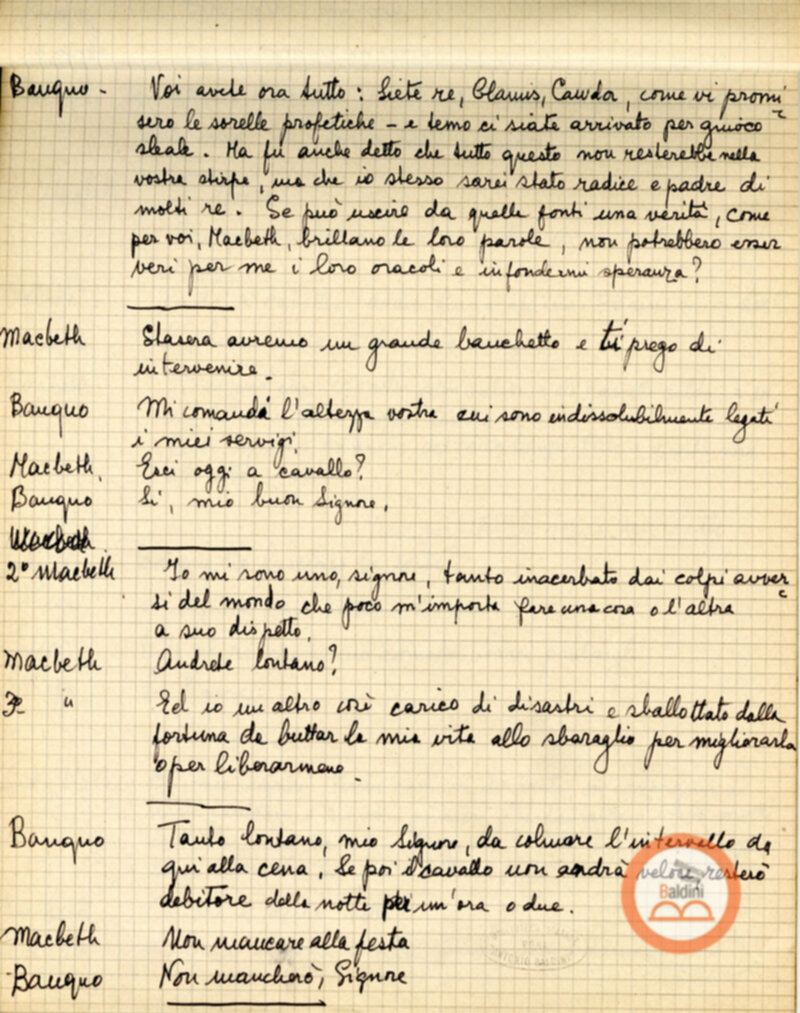 Banquo - Voi avete ora tutto: Siete re, Glamis, Cawdor, come vi promi
sero le sorelle profetiche - e temo ci siate arrivato per giuoco
sleale. Ma fu anche detto che tutto questo non resterebbe nella
vostra stirpe, ma che io stesso sarei stato radice e padre di
molti re. Se può uscire da quelle fonti una verità, come
per voi, Macbeth, brillano le loro parole, non potrebbero esser
veri per me i loro oracoli e infondermi speranza?
Macbeth Stasera avremo un grande banchetto e ti prego di
intervenire.
Banquo Mi comandi l'altezza vostra cui sono indissolubilmente legati
i miei servigi.
Macbeth. Esci oggi a cavallo?
Banquo Si, mio buon Signore.
Macbeth.
2° Macbeth Io mi sono uno, signore, tanto inacerbato dai colpi avver
si del mondo che poco m'importa fare una cosa o l'altra
a suo dispetto.
Macbeth Andrete lontano?
3° " Ed io un altro così carico di disastri e sballottato dalla
fortuna da buttar la mia vita allo sbaraglio per migliorarla
o per liberarmene.
Banquo Tanto lontano, mio Signore, da colmare l'intervallo da
qui alla cena. Se poi il cavallo non andrà veloce, resterò
debitore della notte per un'ora o due.
Baldini
Macbeth Non mancare alla festa
Banquo Non mancherò, Signore